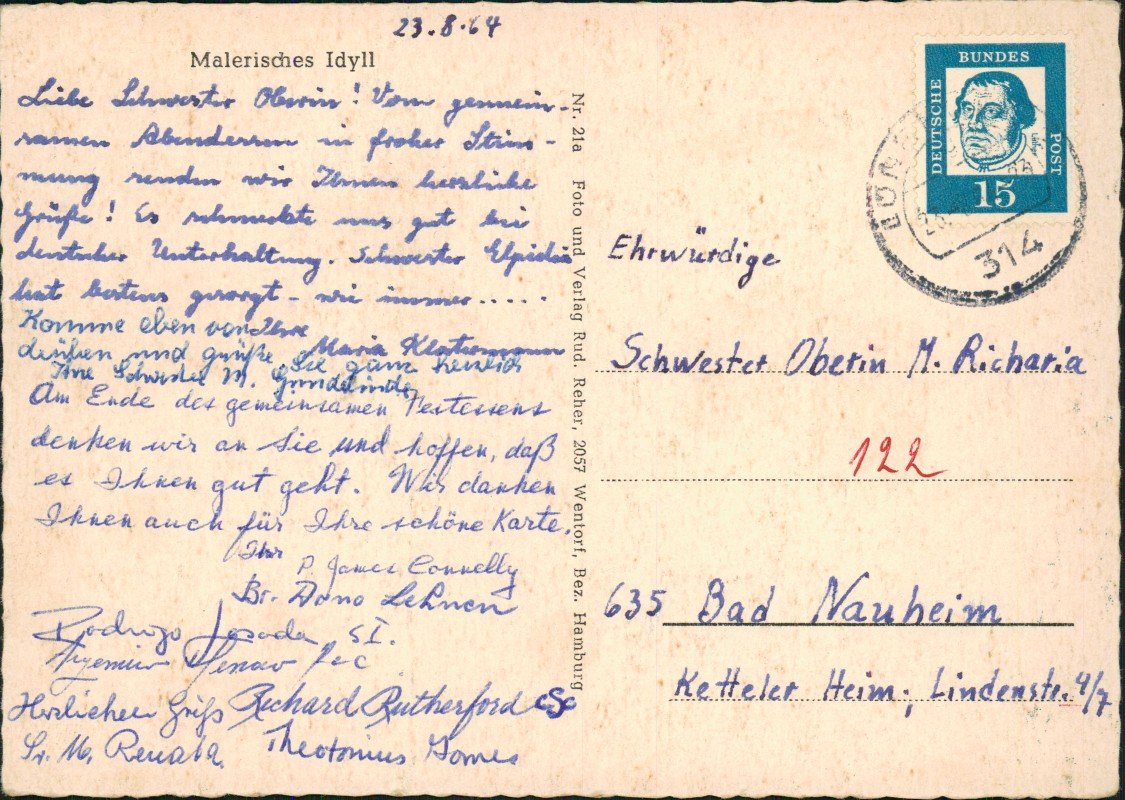 23.8.64
Malerisches Idyll
Liebe Schwester Oberin! Vom gemein-
samen Abendessen in froher Stim-
mung senden wir Ihnen herzliche
Grüße! Es schmeckte uns gut bei
deutscher Unterhaltung. Schwester Elpidia
hat bestens gesorgt - wie immer.....
Ihre
Maria Klostermann
Komme eben von
drüben und grüße Sie ganz herzlich
Ihre Schwester M. Gundelinde
Am Ende des gemeinsamen Festessens
denken wir an Sie und hoffen, daß
es Ihnen gut geht. Wir danken
Ihnen auch für Ihre schöne Karte.
Ihr
P. James Connelly
Br. Dono Lehnen
Rodrigo Losada S.I.
Herzlichen Gruß
Richard Rutherford CSC
Sr. M. Renata
Theotonius Gomes
Nr. 21a Foto und Verlag Rud. Reher, 2057 Wentorf, Bez. Hamburg
DEUTSCHE
BUNDES
POST
15
314
Ehrwürdige
Schwester Oberin M. Richaria
122
635 Bad Nauheim
Ketteler Heim; Lindenstr. 4/7